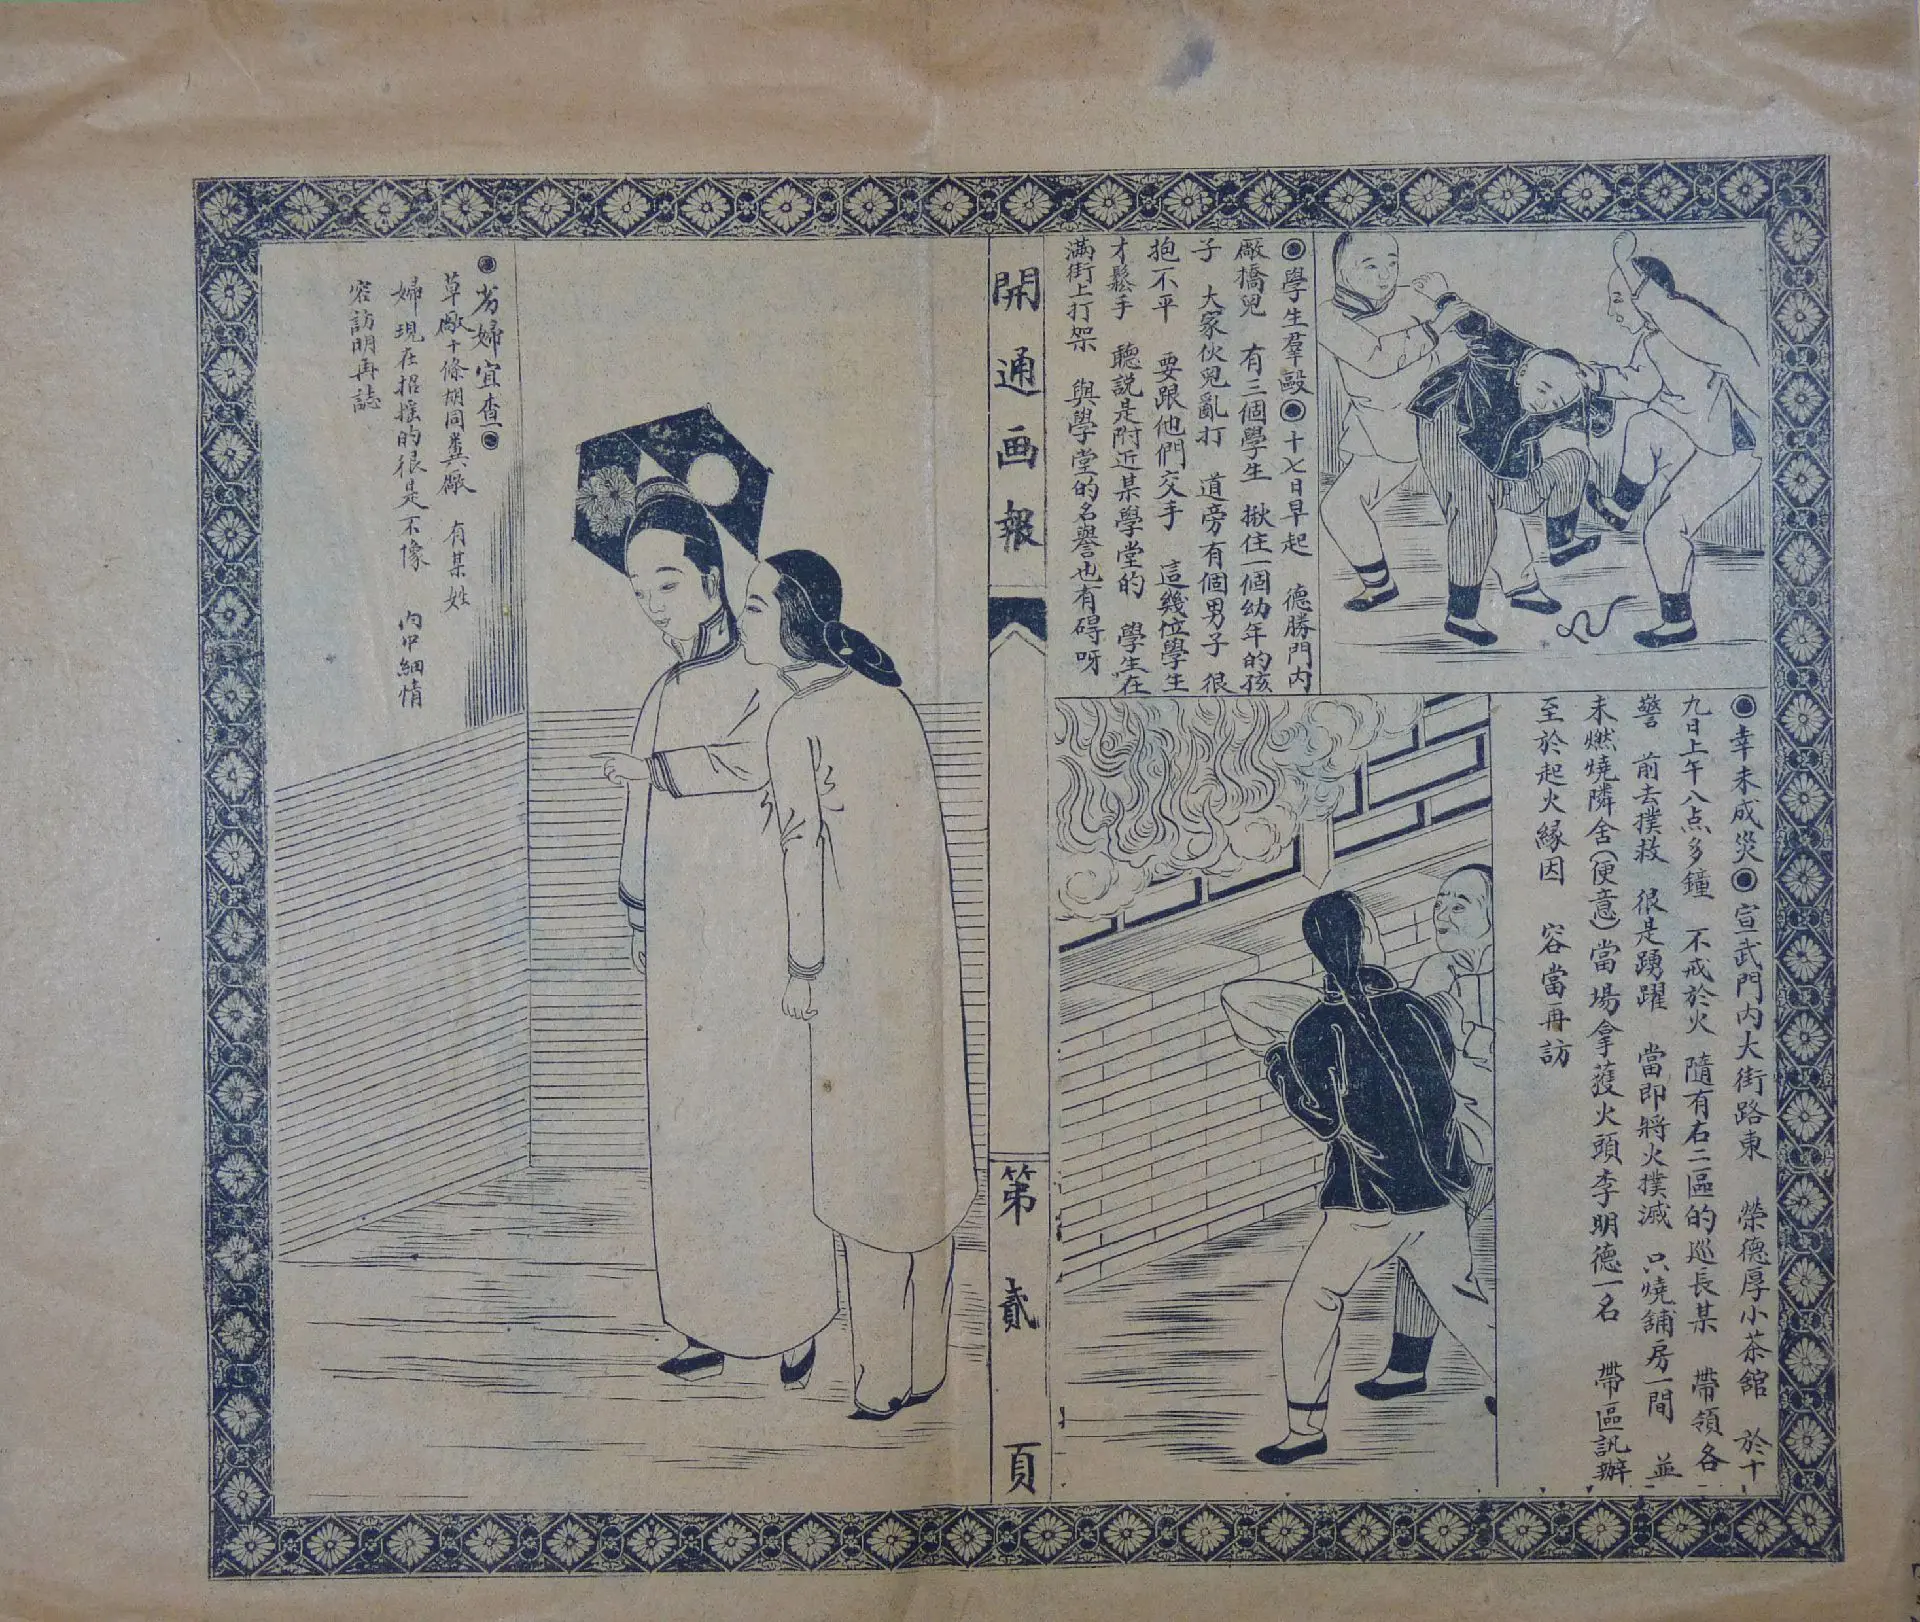 ●學生羣毆●十七日早起　德勝門內
廠橋兒　有三個學生　揪住一個幼年的孩
子　大家伙兒亂打　道旁有個男子　很
抱不平　要跟他們交手　這幾位學生
才鬆手　聽説是附近某學堂的　學生在
滿街上打架　與學堂的名譽也有碍呀
●幸未成災●宣武門內大街路東　榮德厚小茶舘　於十
九日上午八点多鐘　不戒於火　隨有右二區的巡長某　帶領各
警　前去撲救　很是踴躍　當即將火撲滅　只燒舖房一間　並
未燃燒隣舍(便意)當場拿獲火頭李明德一名　帶區訊辦
至於起火緣因　容當再訪
開通画報
第貳頁
●劣婦宜查●
草廠十條胡同糞廠　有某姓
婦現在招搖的很是不像　內中細情
容訪明再誌